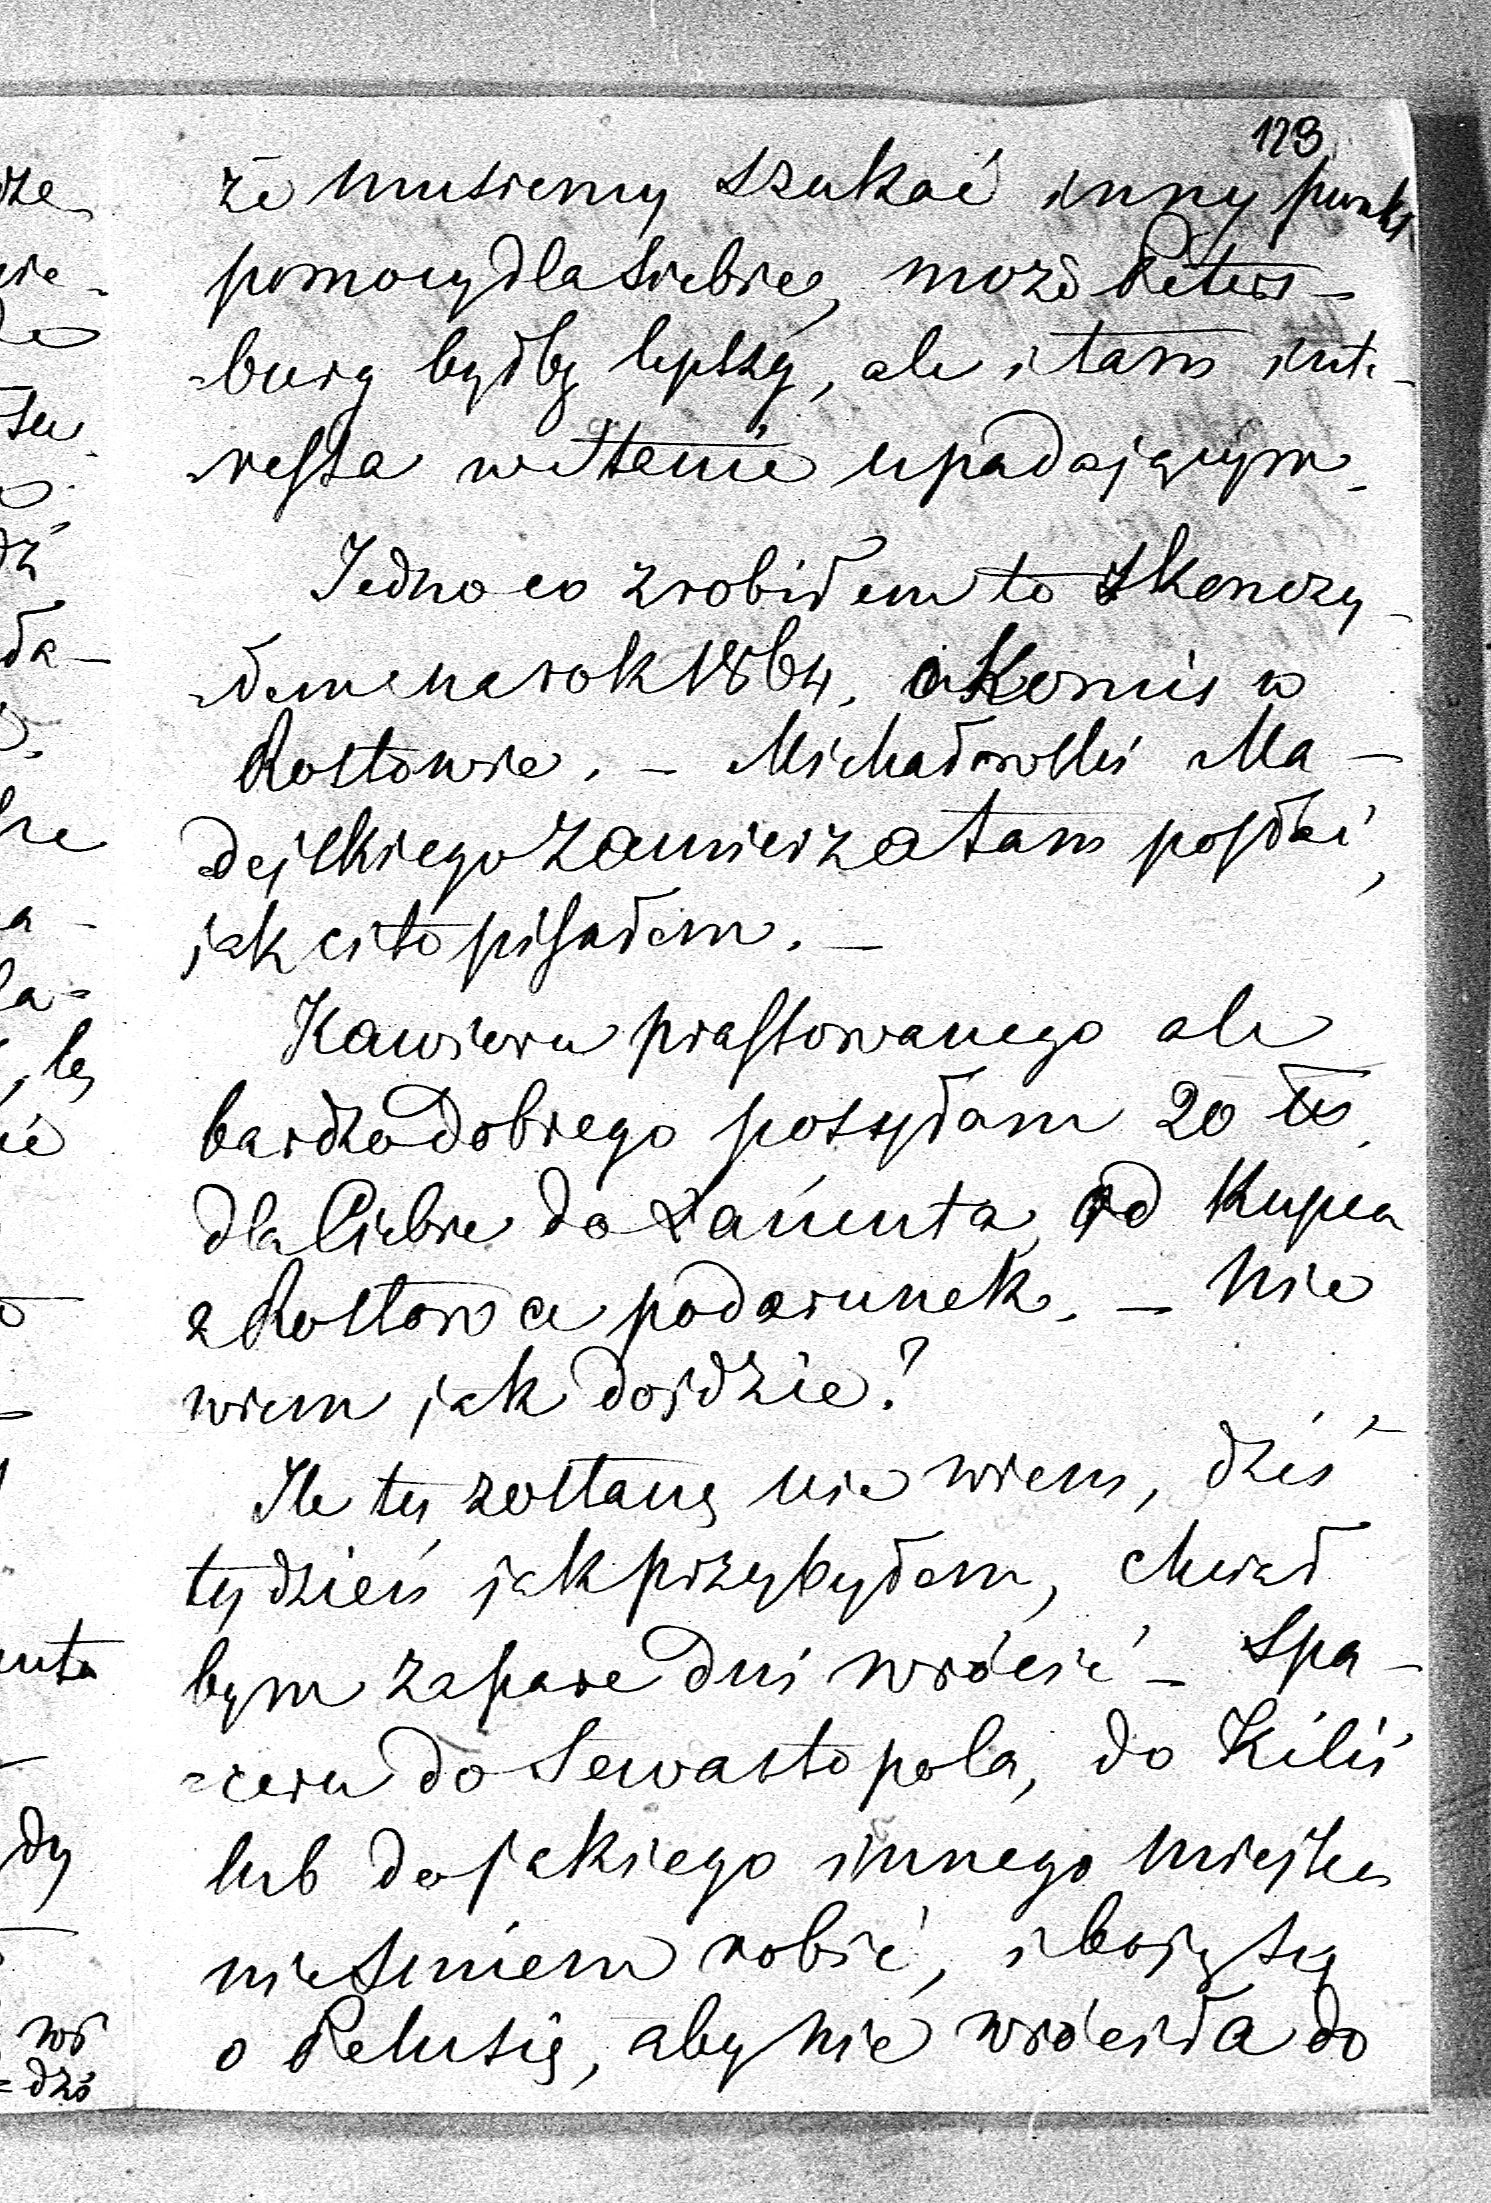 123
że musiemy szukać inny punkt
pomocy dla siebie, może Peters-
-burg byłby lepszy, ale i tam inte-
-ressa w stanie upadającym.
Jedno co zrobiłem to skonczy-
-łem na rok 1864. o Komis w
Rostowie. - Michałowski Ma-
-dejskiego zamierza tam posłać,
jak ci to pisałem. -
Kawioru prassowanego ale
bardzo dobrego posyłam 20 ℔.
dla Ciebie do Łańcuta, od Kupca
z Rostowa podarunek. - Nie
wiem jak dojdzie?
Ile tu zostanę nie wiem, dziś
tydzień jak przybyłem, chciał
bym za pare dni wrócić - Spa-
-ceru do Sewastopola, do Kilii
lub do jakiego innego miejsca
nie smiem robić, i boję się
o Pelusię, aby nie wróciła do